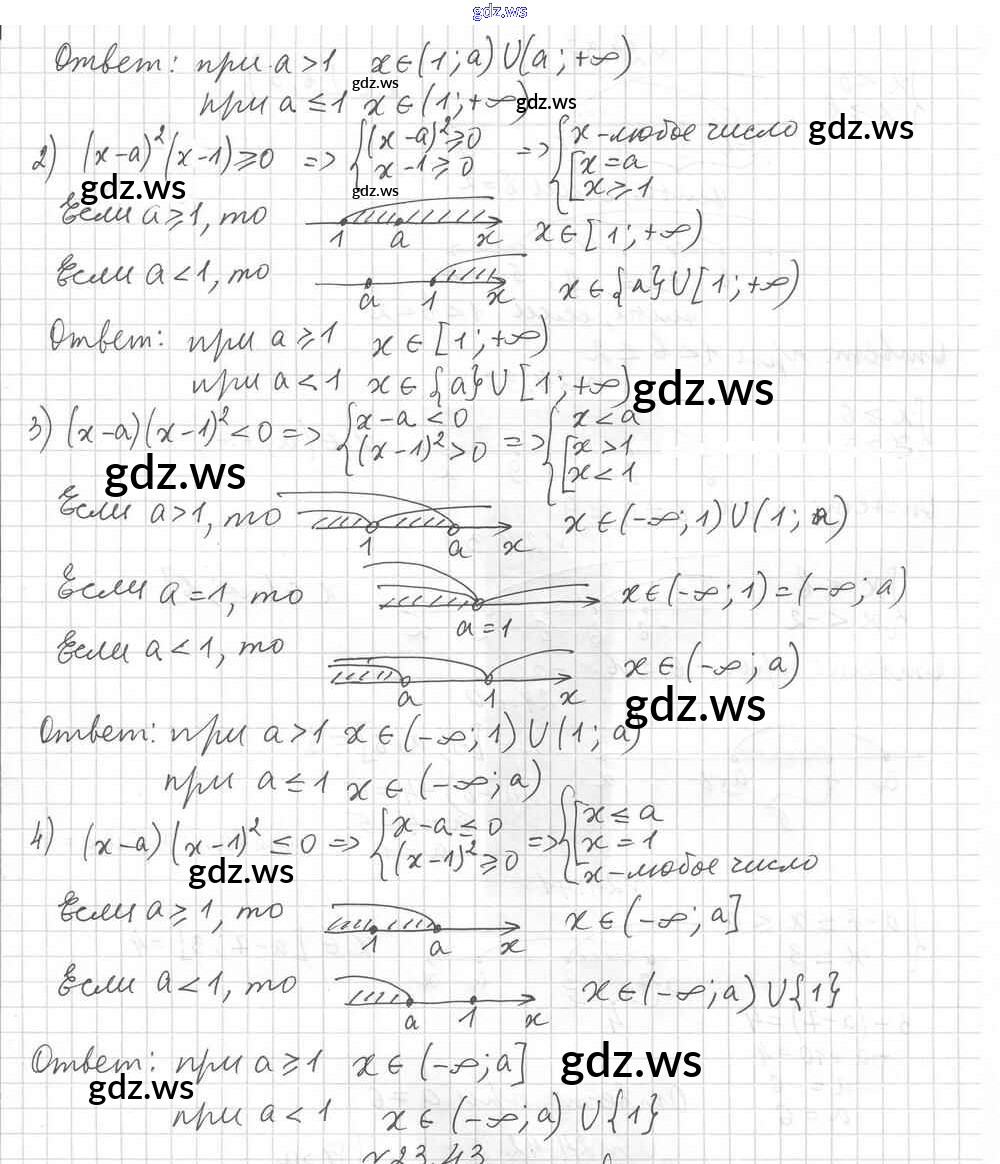 gdz.ws
Ответ: при a > 1 x ∈ (1; a) ∪ (a; +∞)
gdz.ws
при a ≤ 1 x ∈ (1; +∞)
gdz.ws
gdz.ws
2) (x-a)²(x-1) ≥ 0 => { (x-a)² ≥ 0 => { x - любое число
x-1 ≥ 0 [ x = a
x ≥ 1
gdz.ws
gdz.ws
Если a ≥ 1, то 1 a x x ∈ [1; +∞)
Если a < 1, то a 1 x x ∈ {a} ∪ [1; +∞)
Ответ: при a ≥ 1 x ∈ [1; +∞)
при a < 1 x ∈ {a} ∪ [1; +∞)
gdz.ws
3) (x-a)(x-1)² < 0 => { x-a < 0 => { x < a
(x-1)² > 0 [ x > 1
x < 1
gdz.ws
Если a > 1, то 1 a x x ∈ (-∞; 1) ∪ (1; a)
Если a = 1, то a = 1 x ∈ (-∞; 1) = (-∞; a)
Если a < 1, то a 1 x x ∈ (-∞; a)
gdz.ws
Ответ: при a > 1 x ∈ (-∞; 1) ∪ (1; a)
при a ≤ 1 x ∈ (-∞; a)
4) (x-a)(x-1)² ≤ 0 => { x-a ≤ 0 => { [ x ≤ a
(x-1)² ≥ 0 x = 1
x - любое число
gdz.ws
Если a ≥ 1, то 1 a x x ∈ (-∞; a]
Если a < 1, то a 1 x x ∈ (-∞; a) ∪ {1}
Ответ: при a ≥ 1 x ∈ (-∞; a]
gdz.ws
gdz.ws
при a < 1 x ∈ (-∞; a) ∪ {1}
23.43